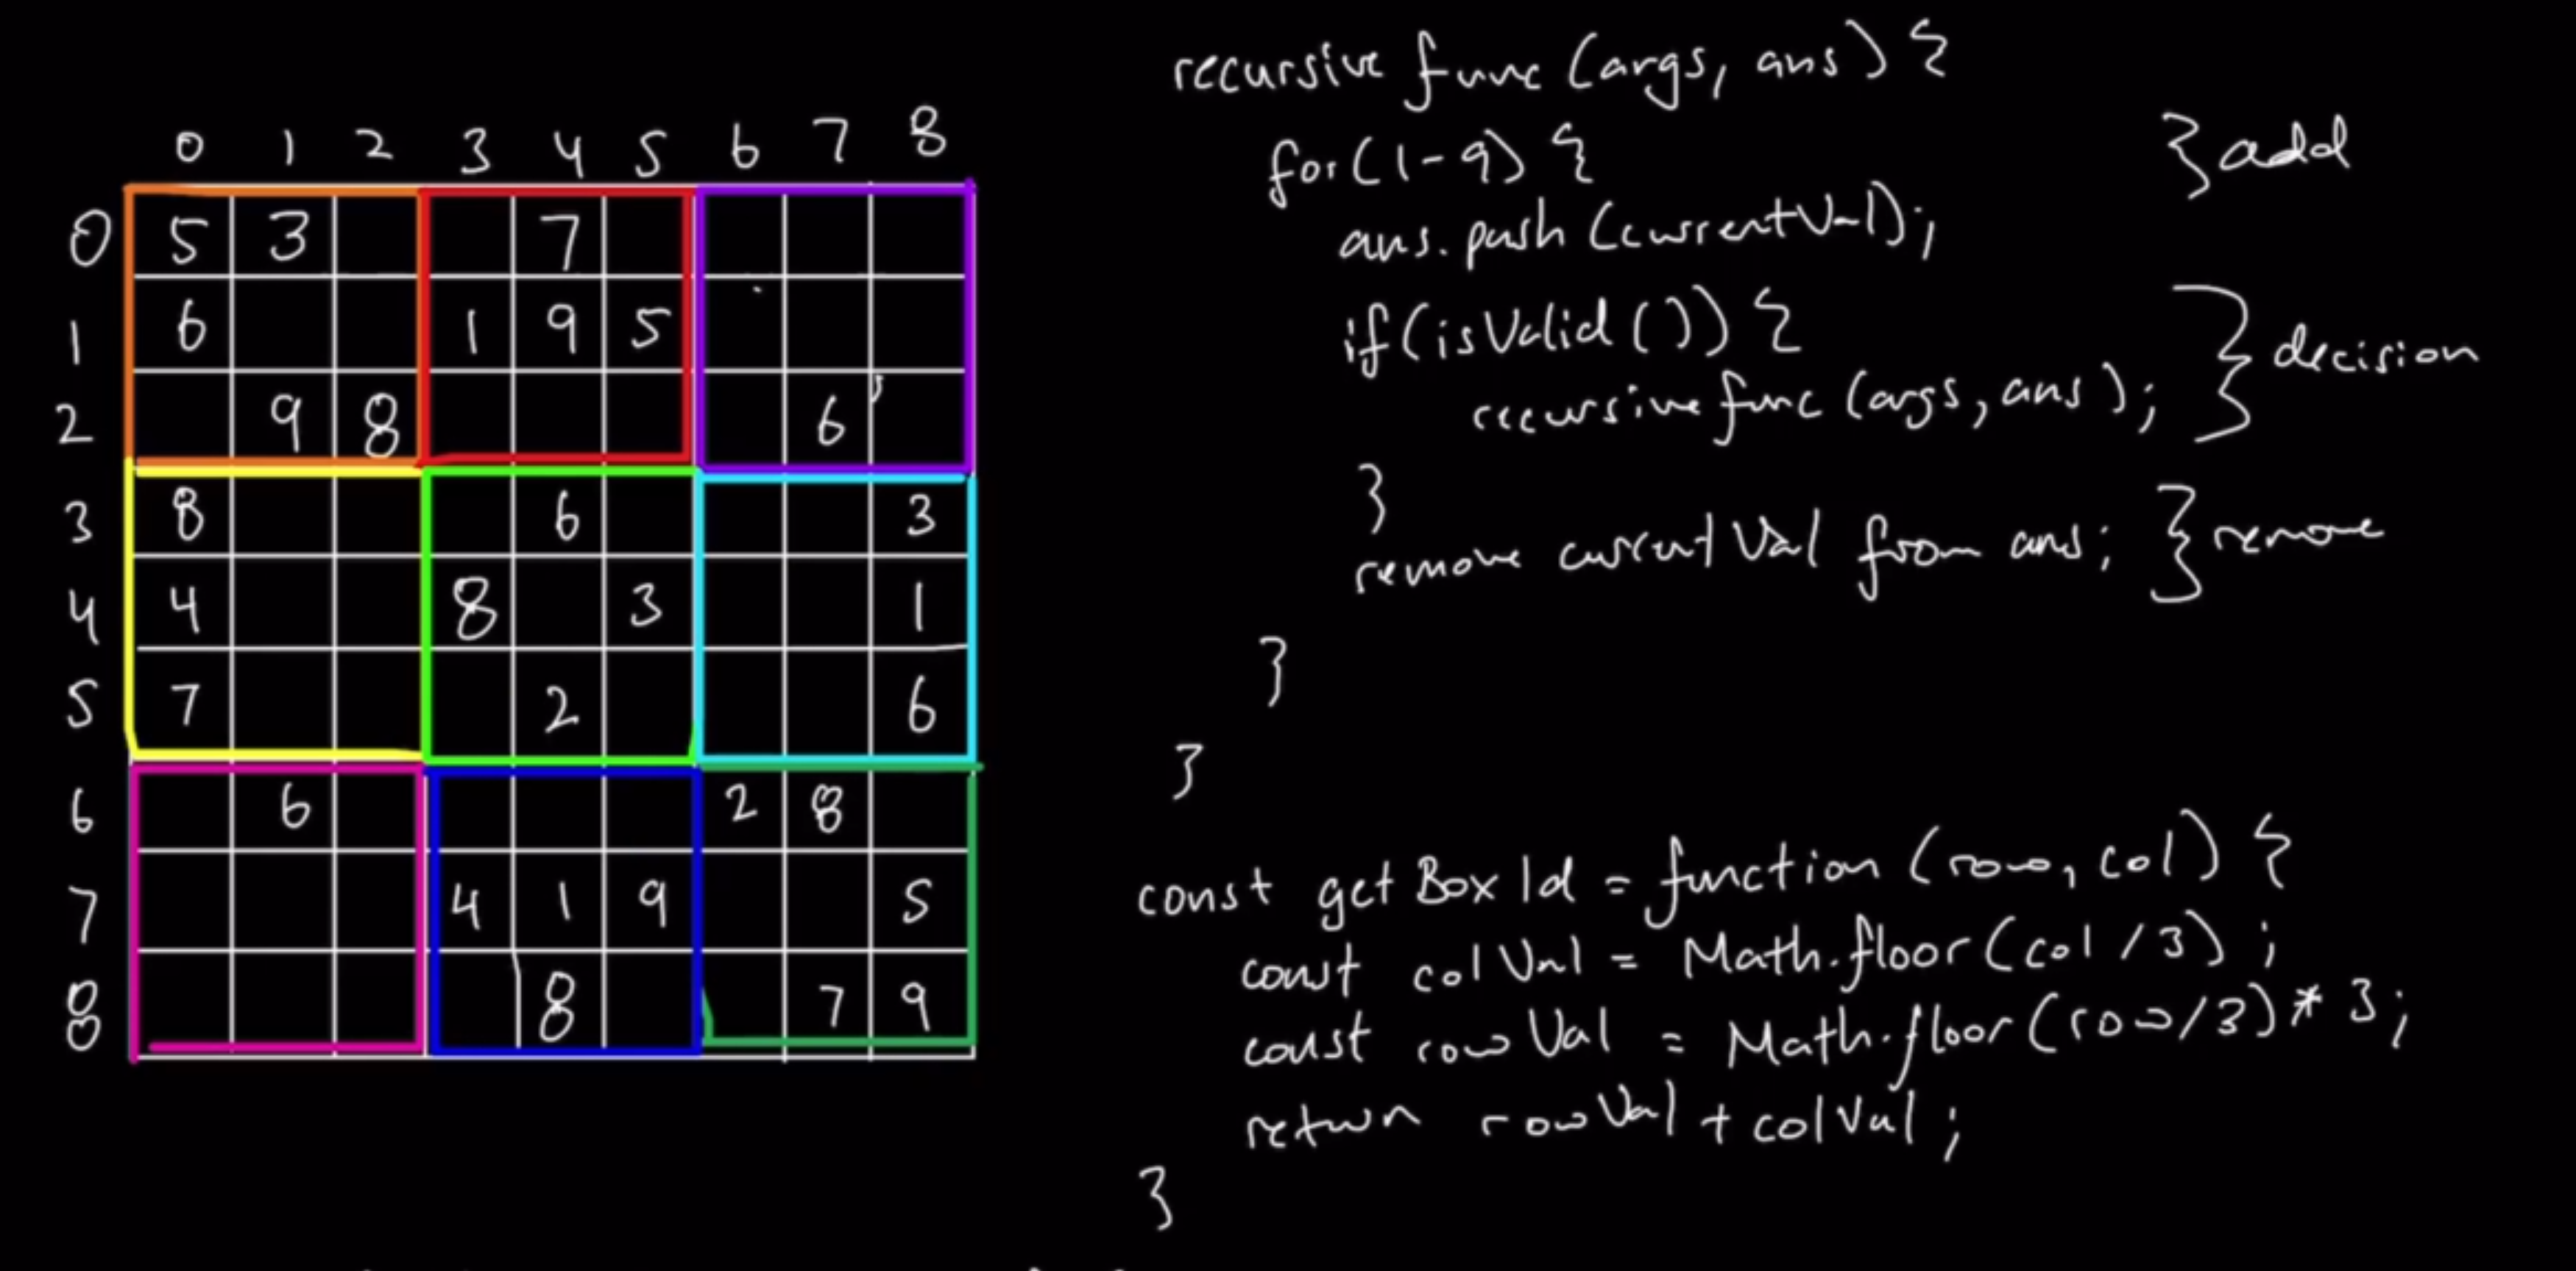 0 1 2 3 4 5 6 7 8
0 5 3 7
1 6 1 9 5
2 9 8 6
3 8 6 3
4 4 8 3 1
5 7 2 6
6 6 2 8
7 4 1 9 5
8 8 7 9
recursive func (args, ans) {
for(1-9) { } add
ans.push (currentVal);
if(isValid ()) {
recursive func (args, ans); } decision
}
remove currentVal from ans; } remove
}
}
const getBoxId = function (row, col) {
const colVal = Math.floor(col/3);
const rowVal = Math.floor(row/3) * 3;
return rowVal + colVal;
}